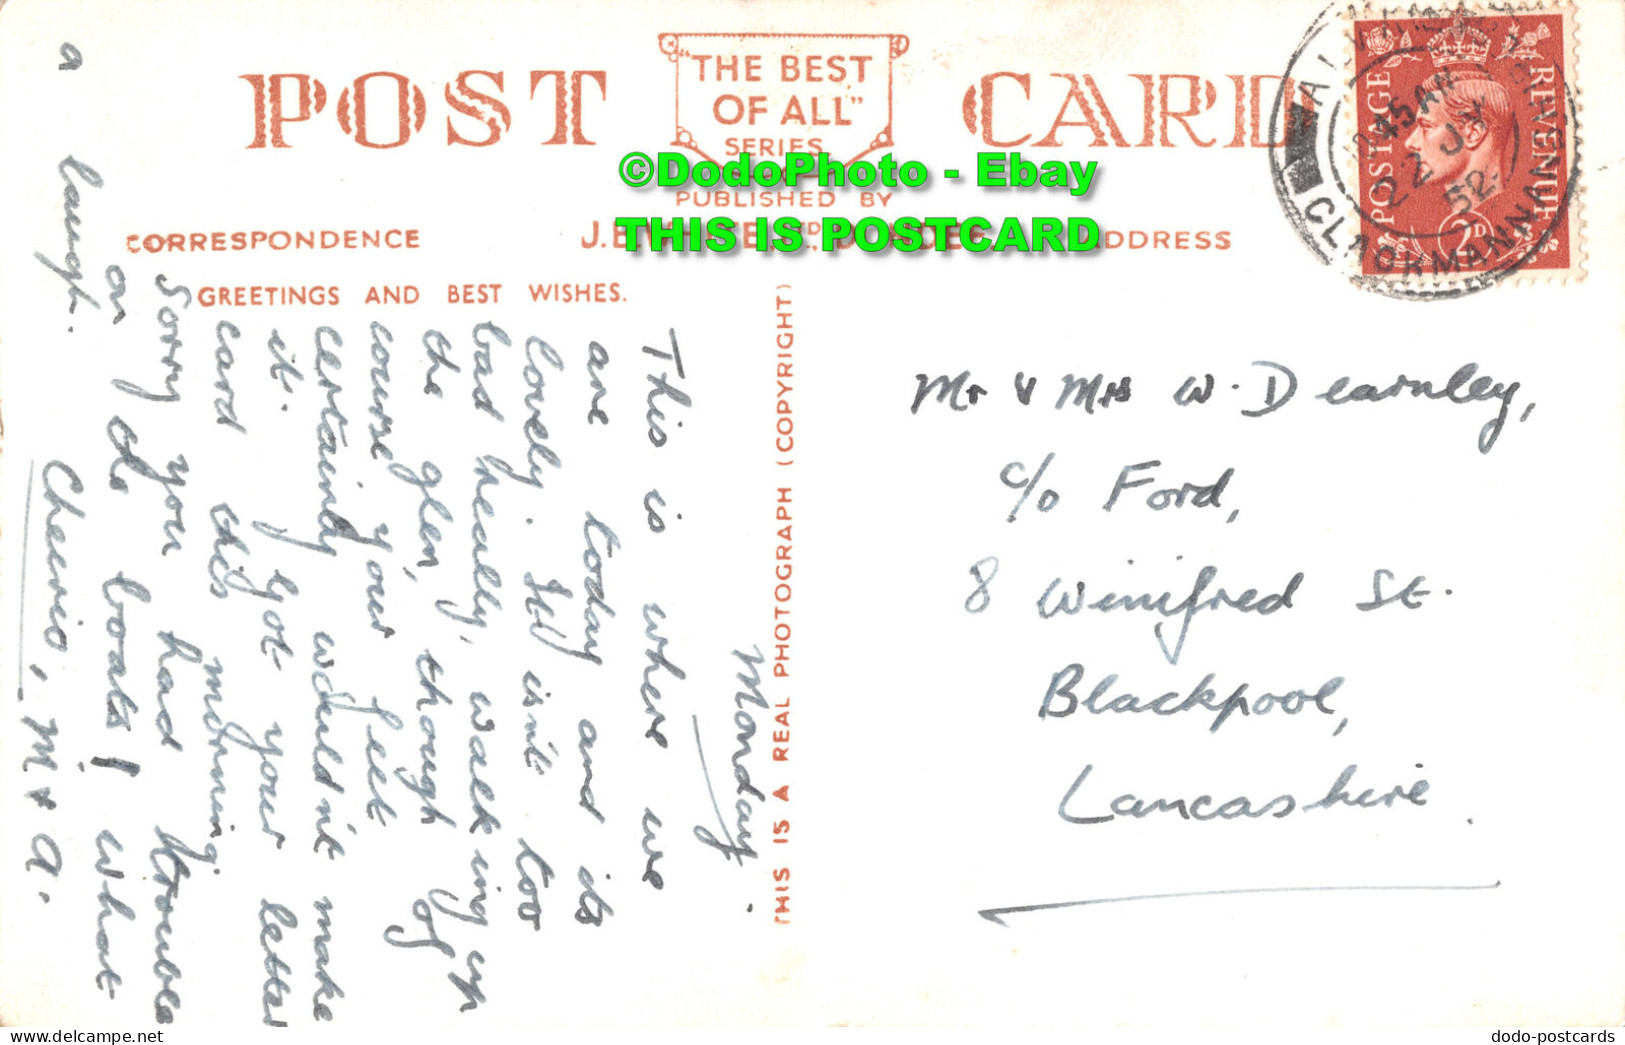 POST CARD
"THE BEST
OF ALL"
SERIES
PUBLISHED BY
©DodoPhoto - Ebay
THIS IS POSTCARD
CORRESPONDENCE
ADDRESS
GREETINGS AND BEST WISHES.
THIS IS A REAL PHOTOGRAPH (COPYRIGHT)
POSTAGE REVENUE
2D
45 AM
22 JY
52
CLACKMANNANS
Monday.
This is where we
are today and its
lovely. It isn't too
bad really, walking up
the glen, though of
course your feet
certainly wouldn't make
it. Got your letter
card this morning.
Sorry you had trouble
on the boats! What
a laugh.
Cheerio, M & A.
Mr & Mrs W. Dearnley,
c/o Ford,
8 Winifred St.
Blackpool,
Lancashire.
dodo-postcards
www.delcampe.net